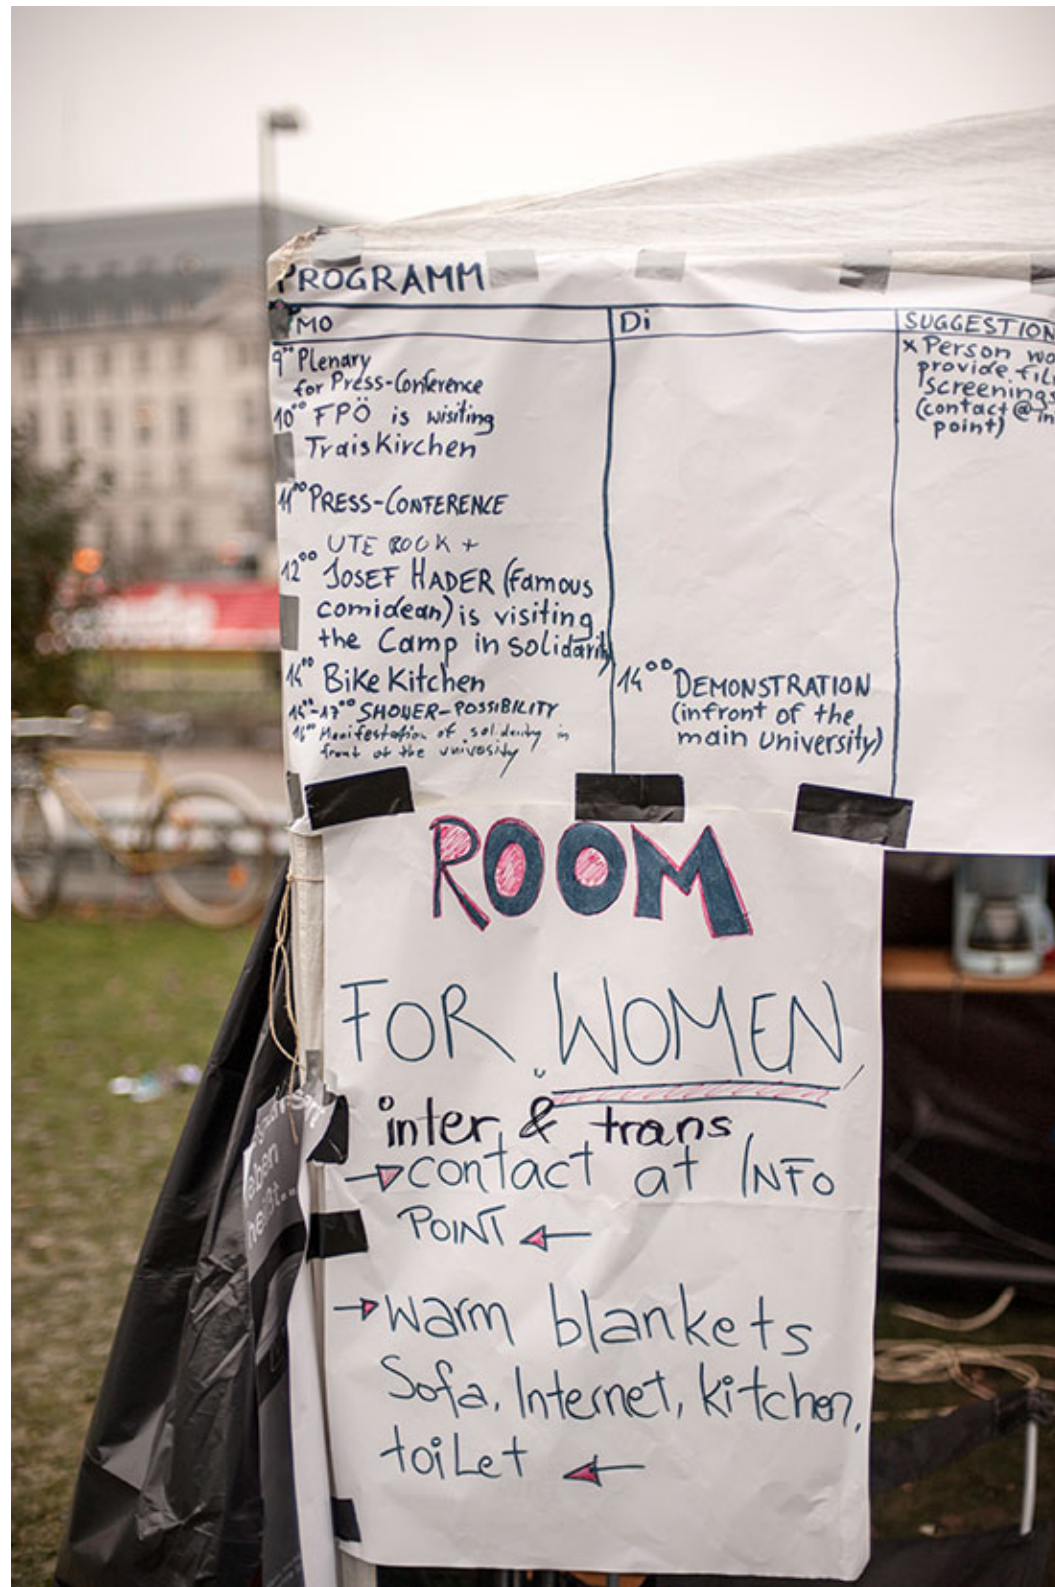 PROGRAMM
MO
9⁰⁰ Plenary
for Press-Conference
10⁰⁰ FPÖ is wisiting
Traiskirchen
11⁰⁰ PRESS-CONFERENCE
UTE BOCK +
12⁰⁰ JOSEF HADER (famous
comidean) is visiting
the Camp in solidarity
14⁰⁰ Bike Kitchen
14⁰⁰-17⁰⁰ SHOWER-POSSIBILITY
16⁰⁰ Manifestation of solidarity in
front of the univosity
Di
14⁰⁰ DEMONSTRATION
(infront of the
main University)
SUGGESTION
x Person wo
provide fil
screenings
(contact @ in
point)
ROOM
FOR WOMEN,
inter & trans
→ contact at INFO
POINT ←
→ warm blankets
Sofa, Internet, kitchen,
toilet ←